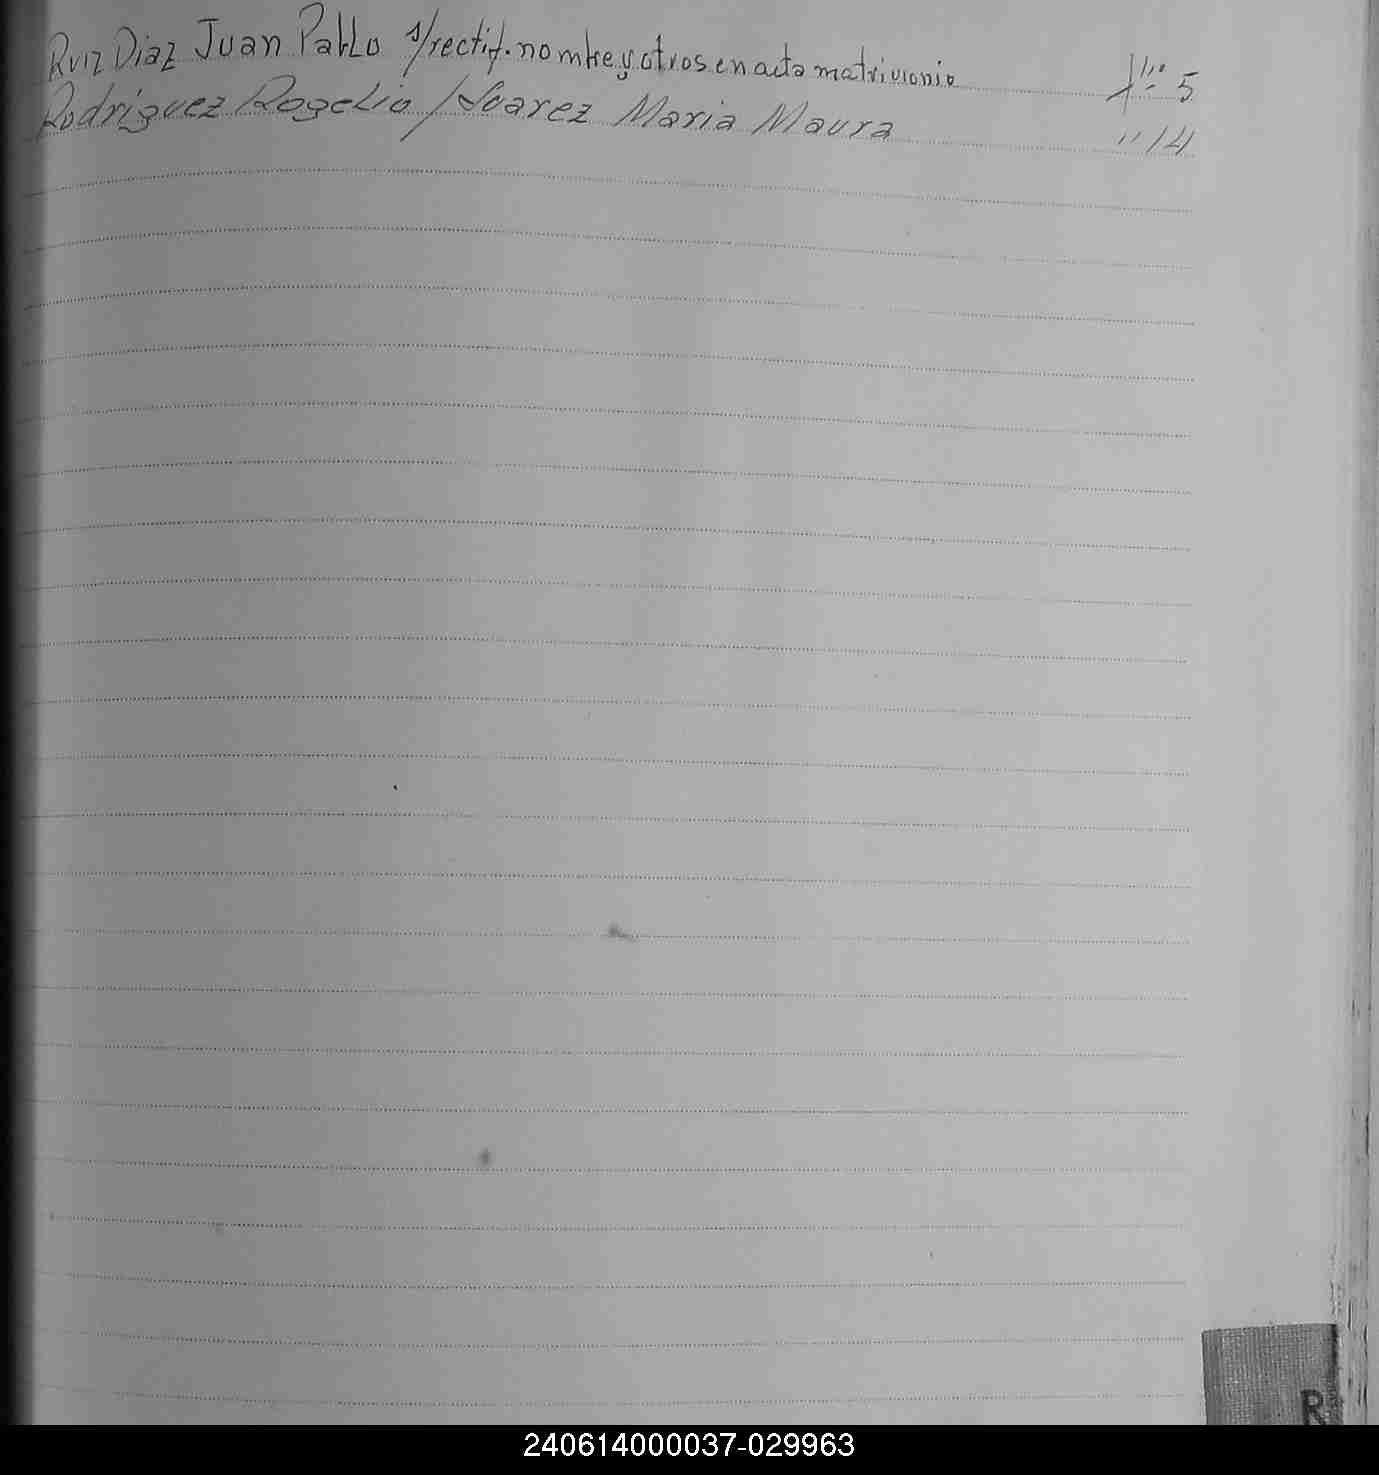 Ruiz Diaz Juan Pablo s/rectif. nombre y otros en acta matrimonio flio 5
Rodriguez Rogelio / Suarez Maria Maura " 14
R
240614000037-029963